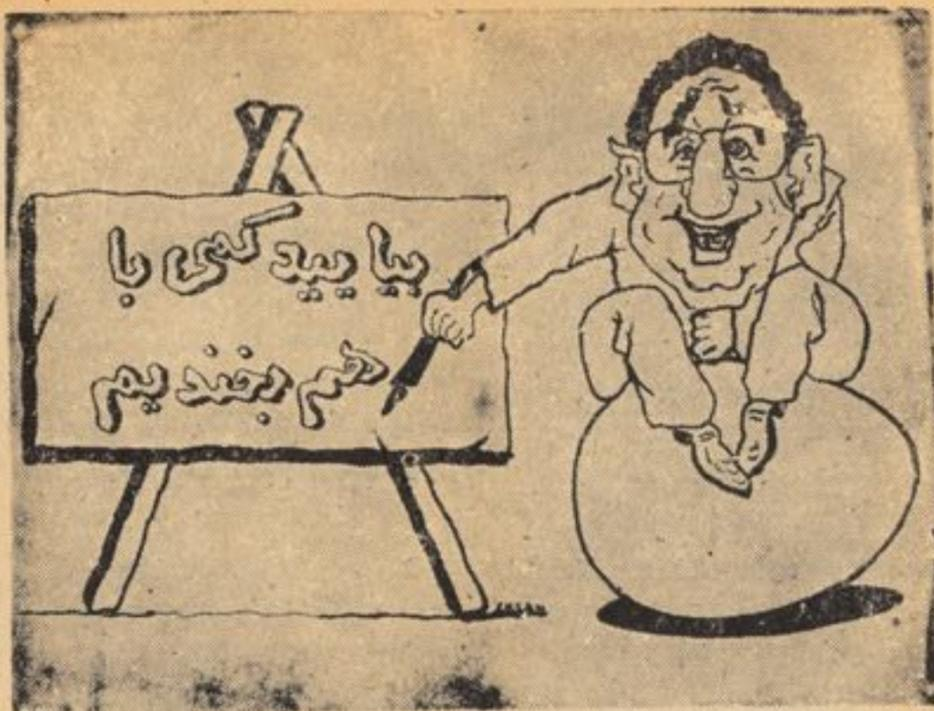 بیا یید کمی با
هم بخند یم